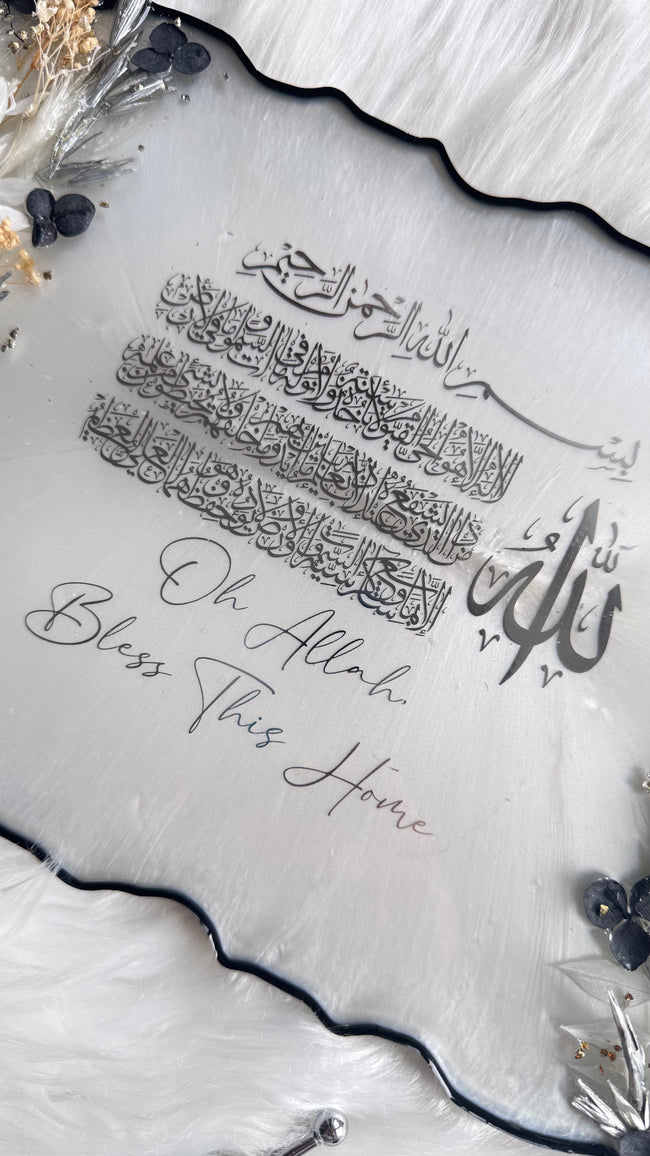 بِسْمِ اللهِ الرَّحْمٰنِ الرَّحِيْمِ
الله لا إله إلا هو الحي القيوم لا تأخذه سنة ولا نوم له ما في السموت وما في الأرض
من ذا الذي يشفع عنده إلا بإذنه يعلم ما بين أيديهم وما خلفهم ولا يحيطون بشيء من علمه
إلا بما شاء وسع كرسيه السموت والأرض ولا يؤده حفظهما وهو العلي العظيم
الله
Oh Allah,
Bless This Home